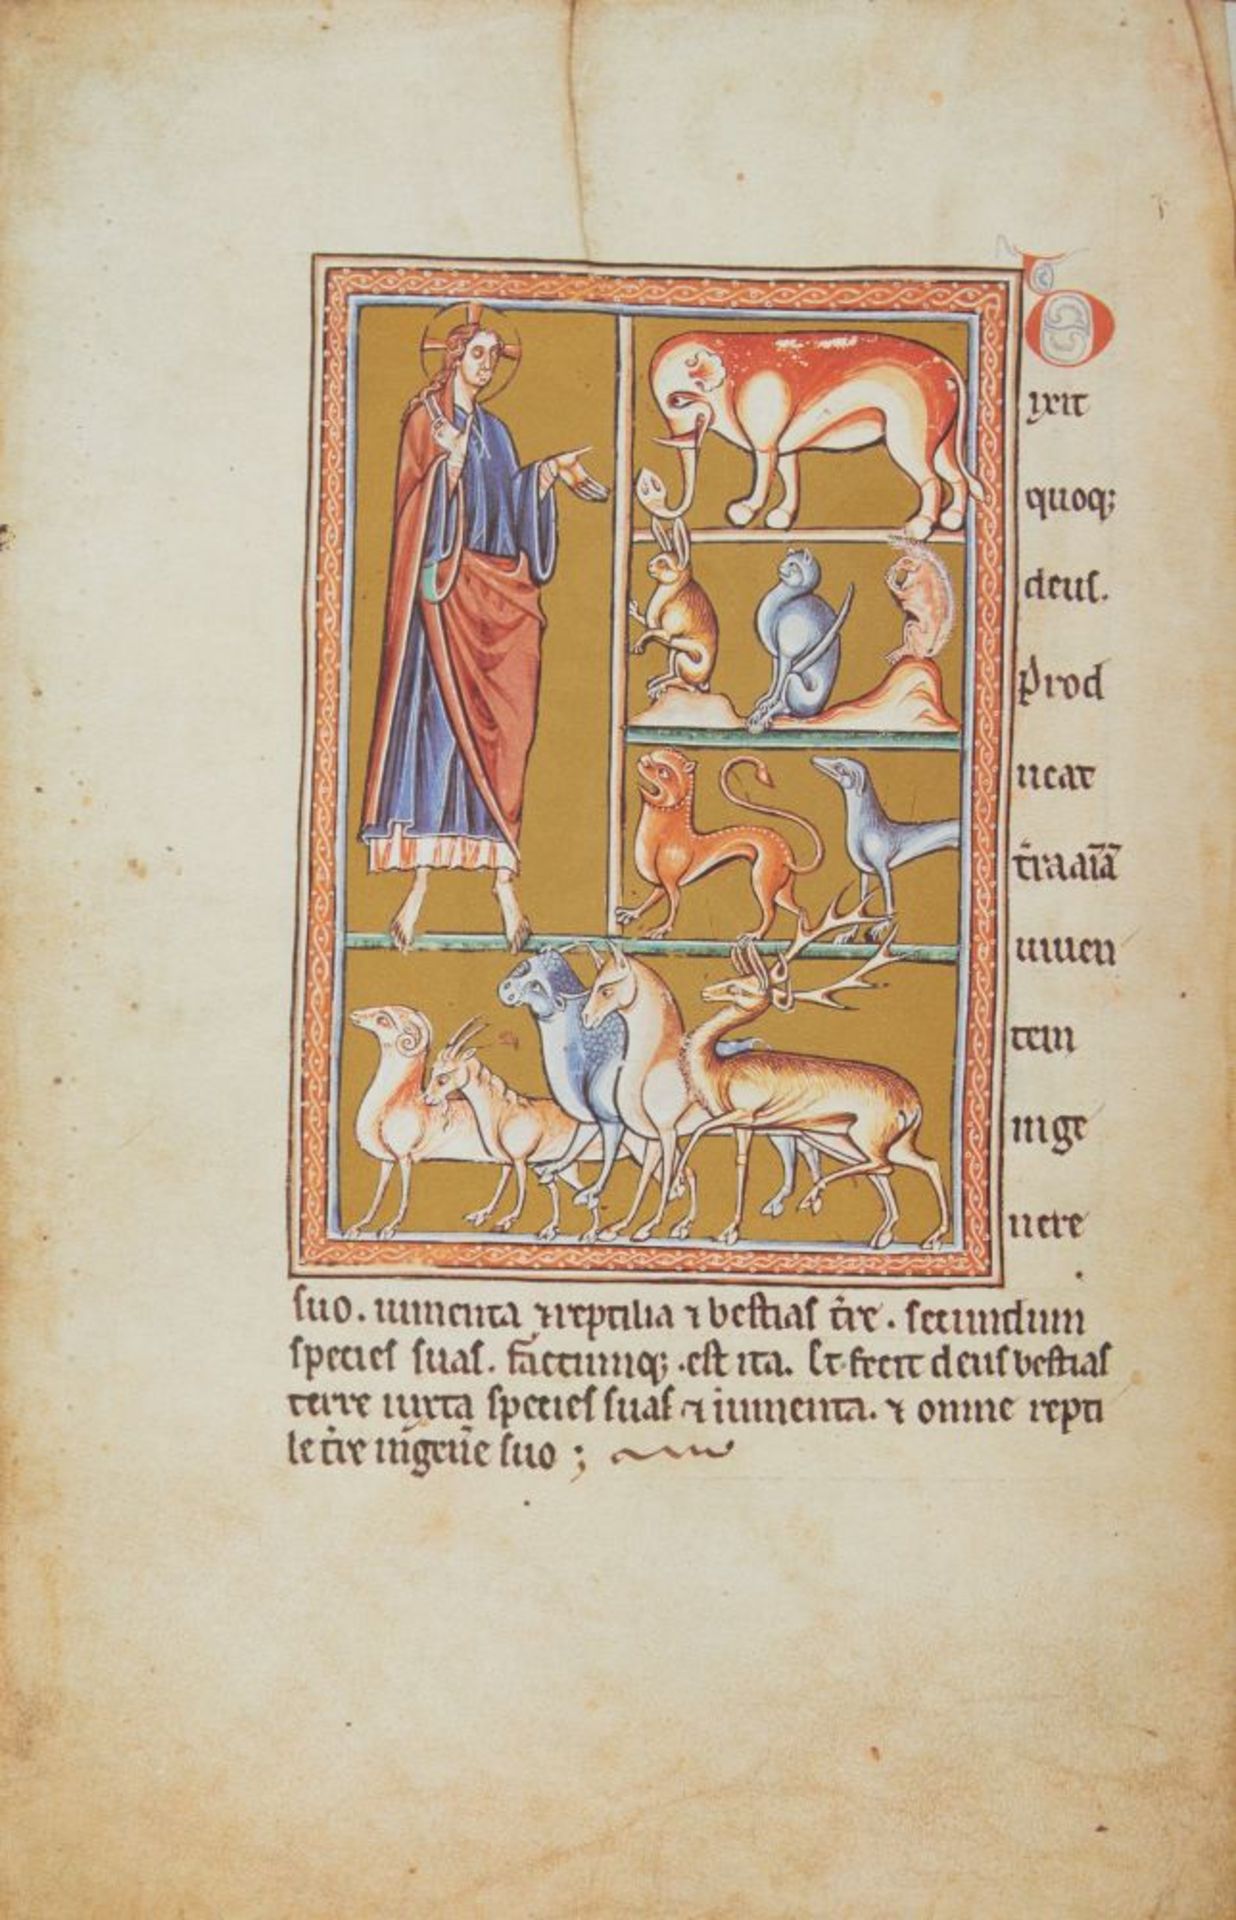 D
ixit
quoq;
deuſ.
Prod
ucat
t̄raaīā
uiuen
tem
inge
nere
ſuo. iumenta ⁊reptilia ⁊ beſtiaſ t̄re. ſecundum
ſpecieſ ſuaſ. factumq; .eſt ita. Et fecit deuſ beſtiaſ
terre iuxta ſpecieſ ſuaſ ⁊ iumenta. ⁊ omne repti
le t̄re ingen̄e ſuo ;